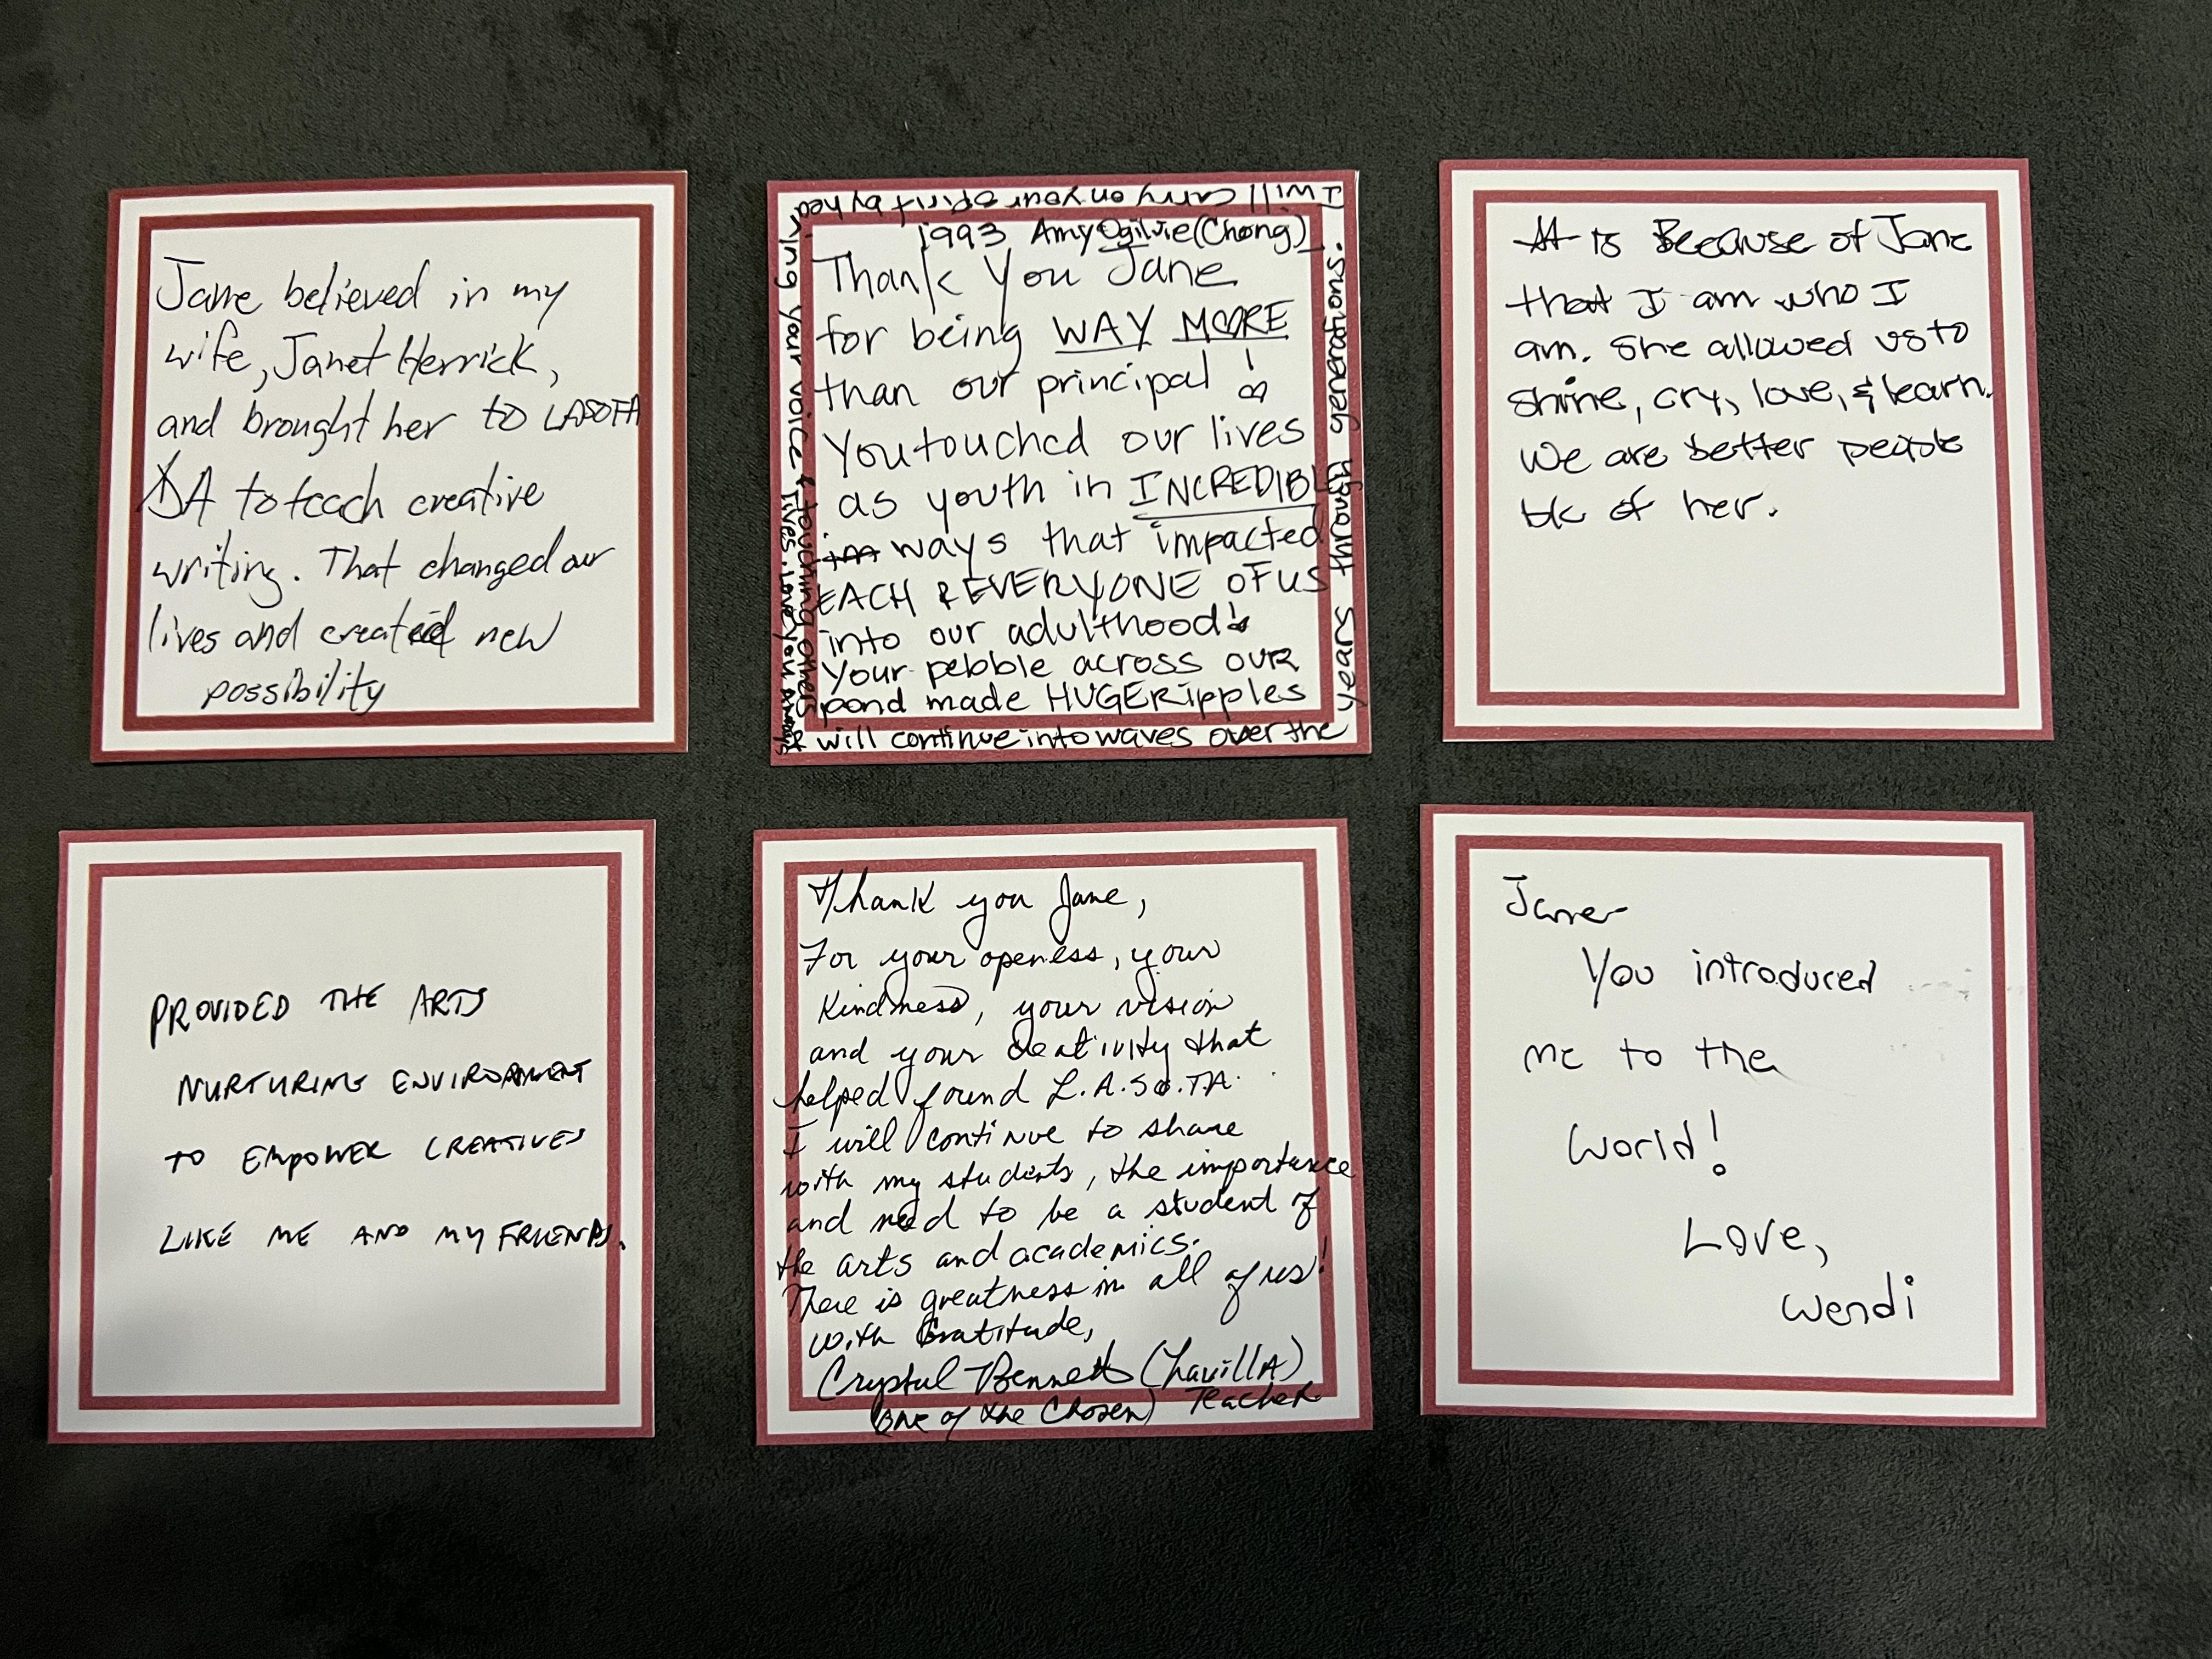 Jane believed in my
wife, Janet Herrick,
and brought her to LASOTA
to teach creative
writing. That changed our
lives and created new
possibility
1993 Amy Ogilvie (Chong)
Thank You Jane
for being WAY MORE
than our principal!
You touched our lives
as youth in INCREDIBLE
ways that impacted
EACH & EVERYONE OF US
into our adulthood!
Your pebble across OUR
pond made HUGE Ripples
& will continue into waves over the
years through generations.
I will carry on your spirit by hea
ring your voice & touching others
lives. Love you always
It is Because of Jane
that I am who I
am. She allowed us to
shine, cry, love, & learn.
We are better people
bk of her.
PROVIDED THE ARTS
NURTURING ENVIRONMENT
TO EMPOWER CREATIVES
LIKE ME AND MY FRIENDS.
Thank you Jane,
For your openess, your
Kindness, your vision
and your creativity that
helped found L.A.So.T.A.
I will continue to share
with my students, the importance
and need to be a student of
the arts and academics.
There is greatness in all of us!
With Gratitude,
Crystal Bennett (LavillA)
(one of the Chosen) Teacher
Jane-
You introduced
me to the
World!
Love,
Wendi